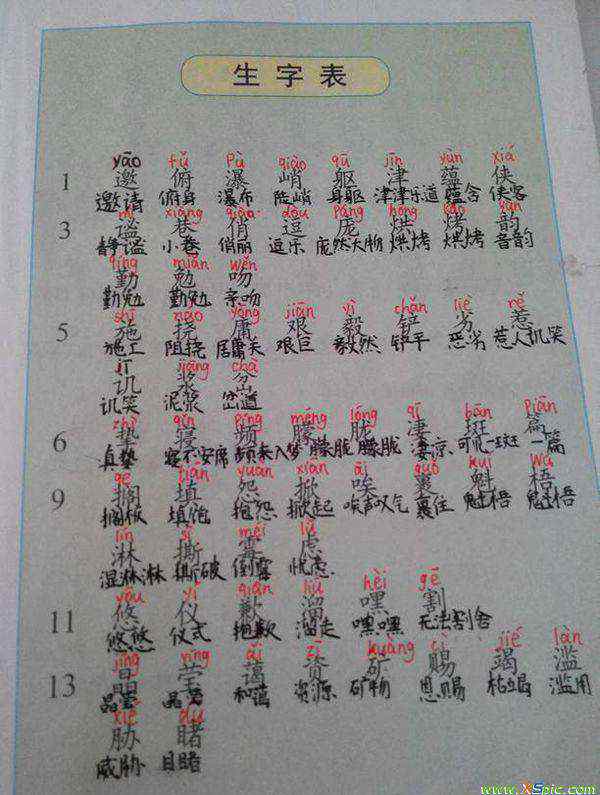 生字表
yāo fǔ pù qiào qū jīn yùn xiá
1 邀 俯 瀑 峭 躯 津 蕴 侠
邀请 俯身 瀑布 陡峭 身躯 津津乐道 蕴含 侠客
mì xiàng qiào dòu páng hōng kǎo yùn
3 谧 巷 俏 逗 庞 烘 烤 韵
静谧 小巷 俏丽 逗乐 庞然大物 烘烤 烘烤 音韵
qín miǎn wěn
勤 勉 吻
勤勉 勤勉 亲吻
shī náo yōng jiān yì chǎn liè rě
5 施 挠 庸 艰 毅 铲 劣 惹
施工 阻挠 居庸关 艰巨 毅然 铲平 恶劣 惹人讥笑
jī jiāng chà
讥 浆 岔
讥笑 泥浆 岔道
zhì qǐn pín méng lóng qī bān piān
6 挚 寝 频 朦 胧 凄 斑 篇
真挚 寝不安席 频来入梦 朦胧 朦胧 凄凉 可见一斑 一篇
gē tián yuàn xiān āi guǒ kuí wú
9 搁 填 怨 掀 唉 裹 魁 梧
搁板 填饱 抱怨 掀起 唉声叹气 裹住 魁梧 魁梧
lín sī méi lǜ
淋 撕 霉 虑
湿淋淋 撕破 倒霉 忧虑
yōu yí qiàn liū hēi gē
11 悠 仪 歉 溜 嘿 割
悠悠 仪式 抱歉 溜走 嘿嘿 无法割舍
jīng yíng ǎi zī kuàng cì jié làn
13 晶 莹 蔼 资 矿 赐 竭 滥
晶莹 和蔼 资源 矿物 恩赐 枯竭 滥用
xié dǔ
胁 睹
威胁 目睹
www.XSpic.com